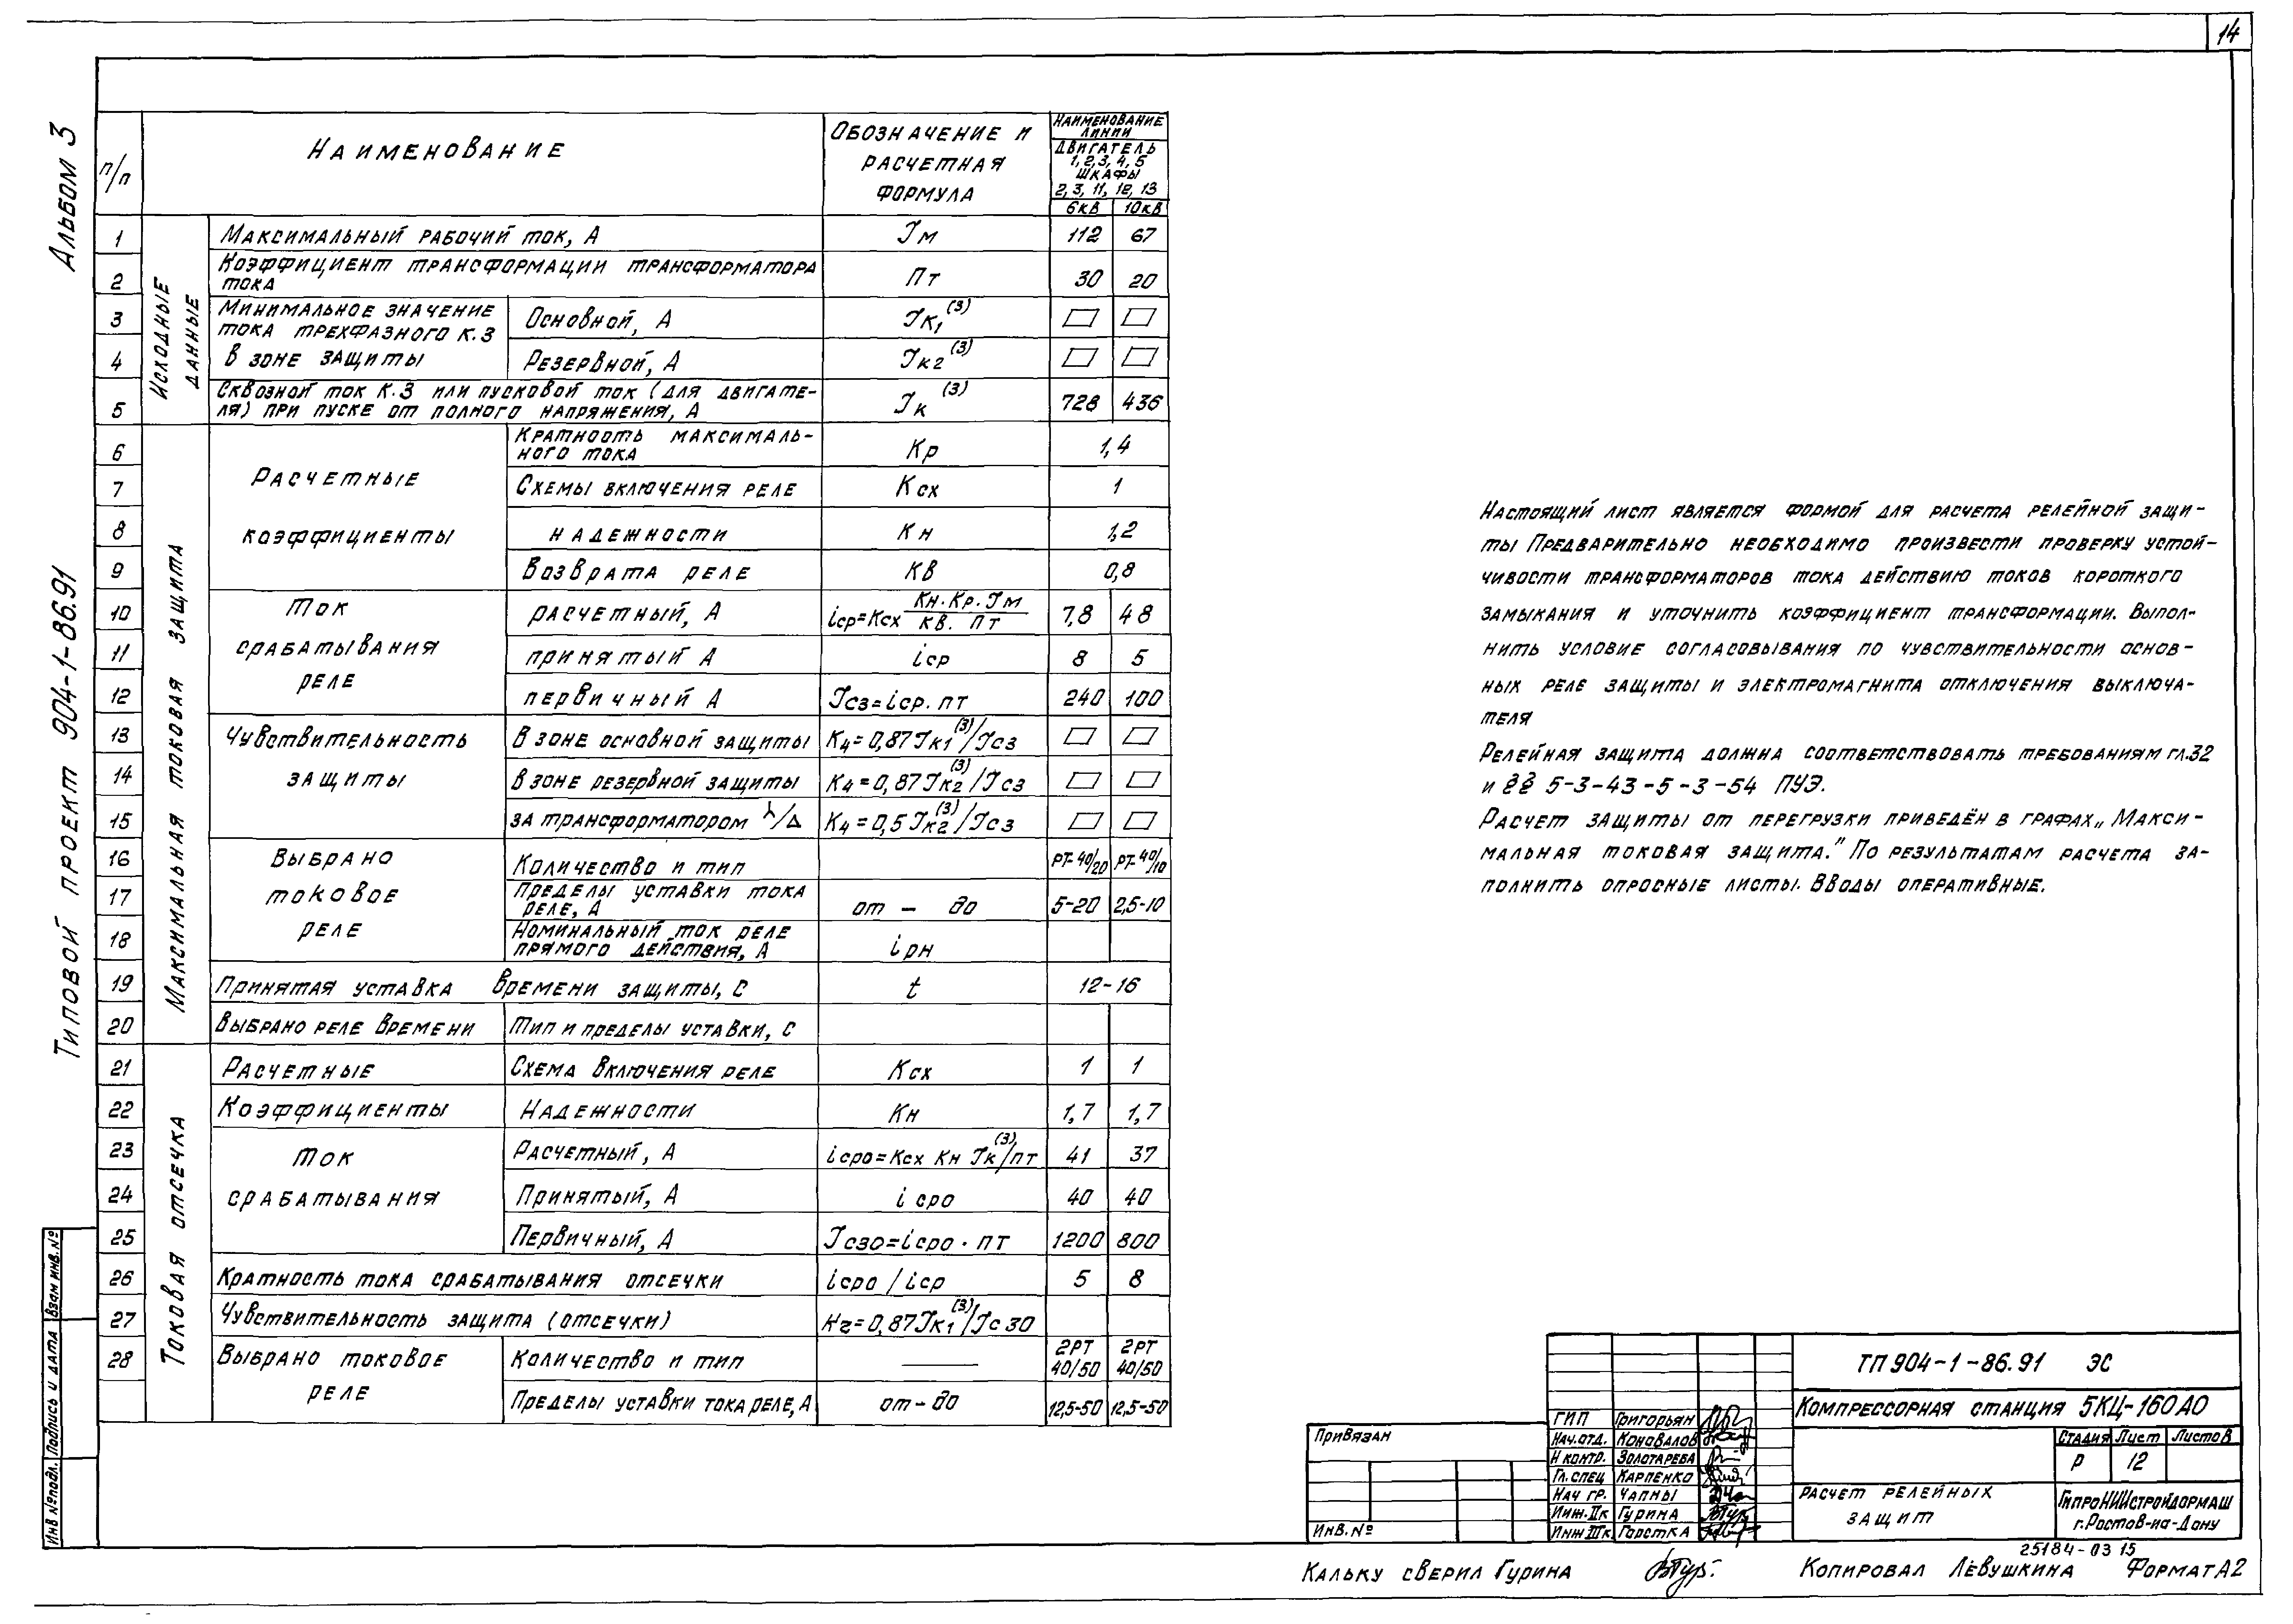 14
Альбом 3
Типовой проект 904-1-86.91
п/п
Наименование
Обозначение и
расчетная
формула
Наименование
линии
Двигатель
1, 2, 3, 4, 5
шкафы
2, 3, 11, 12, 13
6кВ 10кВ
Исходные
данные
1 Максимальный рабочий ток, А Iм 112 67
2 Коэффициент трансформации трансформатора
тока Пт 30 20
Минимальное значение
тока трехфазного к.з
в зоне защиты
3 Основной, А Iк1(3)
4 Резервной, А Iк2(3)
5 Сквозной ток к.з или пусковой ток (для двигате-
ля) при пуске от полного напряжения, А Iк(3) 728 436
Максимальная токовая защита
Расчетные
коэффициенты
6 Кратность максималь-
ного тока Кр 1,4
7 Схемы включения реле Ксх 1
8 надежности Кн 1,2
9 Возврата реле Кв 0,8
Ток
срабатывания
реле
10 расчетный, А iср=Ксх Кн.Кр.Iм / Кв. Пт 7,8 48
11 принятый А iср 8 5
12 первичный А Iсз=iср.пт 240 100
Чувствительность
защиты
13 В зоне основной защиты К4=0,87Iк1(3)/Iсз
14 В зоне резервной защиты К4=0,87Iк2(3)/Iсз
15 за трансформатором ⅄/Δ К4=0,5Iк2(3)/Iсз
Выбрано
токовое
реле
16 Количество и тип РТ-40/20 РТ-40/10
17 Пределы уставки тока
реле, А от – до 5-20 2,5-10
18 Номинальный ток реле
прямого действия, А iрн
19 Принятая уставка времени защиты, с t 12-16
20 Выбрано реле времени Тип и пределы уставки, с
Токовая отсечка
21 Расчетные Схема включения реле Ксх 1 1
22 Коэффициенты Надежности Кн 1,7 1,7
Ток
срабатывания
23 Расчетный, А iсро=Ксх Кн Iк(3)/пт 41 37
24 Принятый, А iсро 40 40
25 Первичный, А Iсзо=iсро·пт 1200 800
26 Кратность тока срабатывания отсечки iсро/iср 5 8
27 Чувствительность защита (отсечки) Кг=0,87Iк1(3)/Iсзо
28 Выбрано токовое
реле
Количество и тип —— 2РТ 40/50 2РТ 40/50
Пределы уставки тока реле, А от-до 12,5-50 12,5-50
Настоящий лист является формой для расчета релейной защи-
ты Предварительно необходимо произвести проверку устой-
чивости трансформаторов тока действию токов короткого
замыкания и уточнить коэффициент трансформации. Выпол-
нить условие согласовывания по чувствительности основ-
ных реле защиты и электромагнита отключения выключа-
теля
Релейная защита должна соответствовать требованиям гл.32
и §§ 5-3-43-5-3-54 ПУЭ.
Расчет защиты от перегрузки приведён в графах „Макси-
мальная токовая защита." По результатам расчета за-
полнить опросные листы. Вводы оперативные.
Инв №подл. Подпись и дата Взам инв.№
Привязан
Инв.№
ГИП Григорьян
Нач.отд. Коновалов
Н контр. Золотарева
Гл.спец Карпенко
Нач гр. Чапны
Инж.IIк Гурина
Инж IIIк Горстка
ТП 904-1-86.91 ЭС
Компрессорная станция 5КЦ-160А0
Стадия Лист Листов
Р 12
Расчет релейных
защит
ГипроНИИстройдормаш
г.Ростов-на-Дону
25184-03 15
Кальку сверил Гурина
Копировал Лёвушкина Формат А2